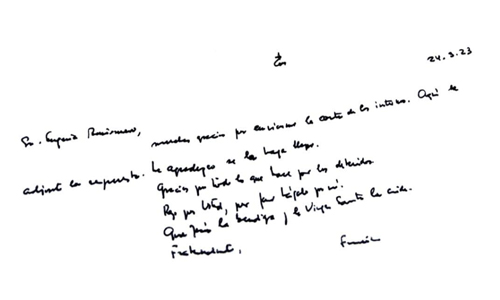 24.3.23
Sra. Eugenia
muchas gracias por enviarme la carta de los internos. Aquí le
adjunto la respuesta. Le agradezco se la haga llegar.
Gracias por todo lo que hace por los detenidos
Rezo por Usted, por favor hágalo por mí.
Que Jesús la bendiga y la Virgen Santa la cuide.
Fraternalmente,